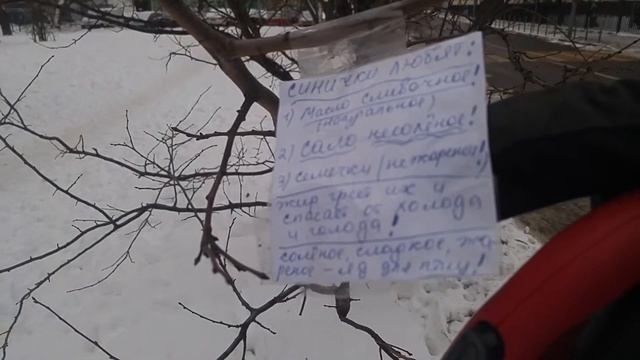 СИНИЧКИ ЛЮБЯТ:
1) Масло сливочное!
(натуральное)
2) Сало несолёное!
3) семечки (не жареное)!
Жир греет их и
спасает от холода
и голода!
солёное, сладкое, жа-
реное - яд для птиц!